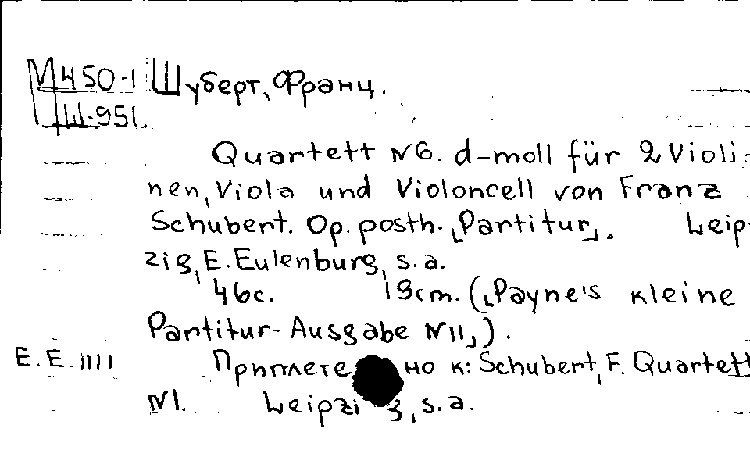 М450-1 Шуберт, Франц.
Ш-951.
Quartett №6. d-moll für 2 Violi-
nen, Viola und Violoncell von Franz
Schubert. Op. posth. „Partitur„. Leip-
zig, E. Eulenburg, s.a.
46с. 19cm. („Payne's kleine
Partitur-Ausgabe №11„).
E.E.1111 Приплетено к: Schubert, F. Quartett
№1. Leipzig, s.a.